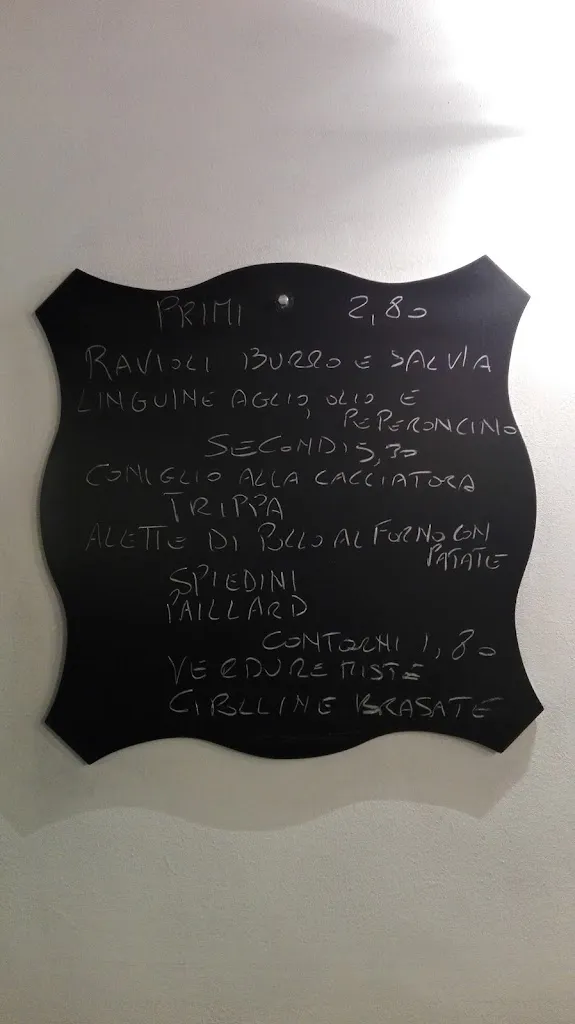 PRIMI 2,80
RAVIOLI BURRO E SALVIA
LINGUINE AGLIO, OLIO E
PEPERONCINO
SECONDI 5,30
CONIGLIO ALLA CACCIATORA
TRIPPA
ALETTE DI POLLO AL FORNO CON
PATATE
SPIEDINI
PAILLARD
CONTORNI 1,80
VERDURE MISTE
CIPOLLINE BRASATE